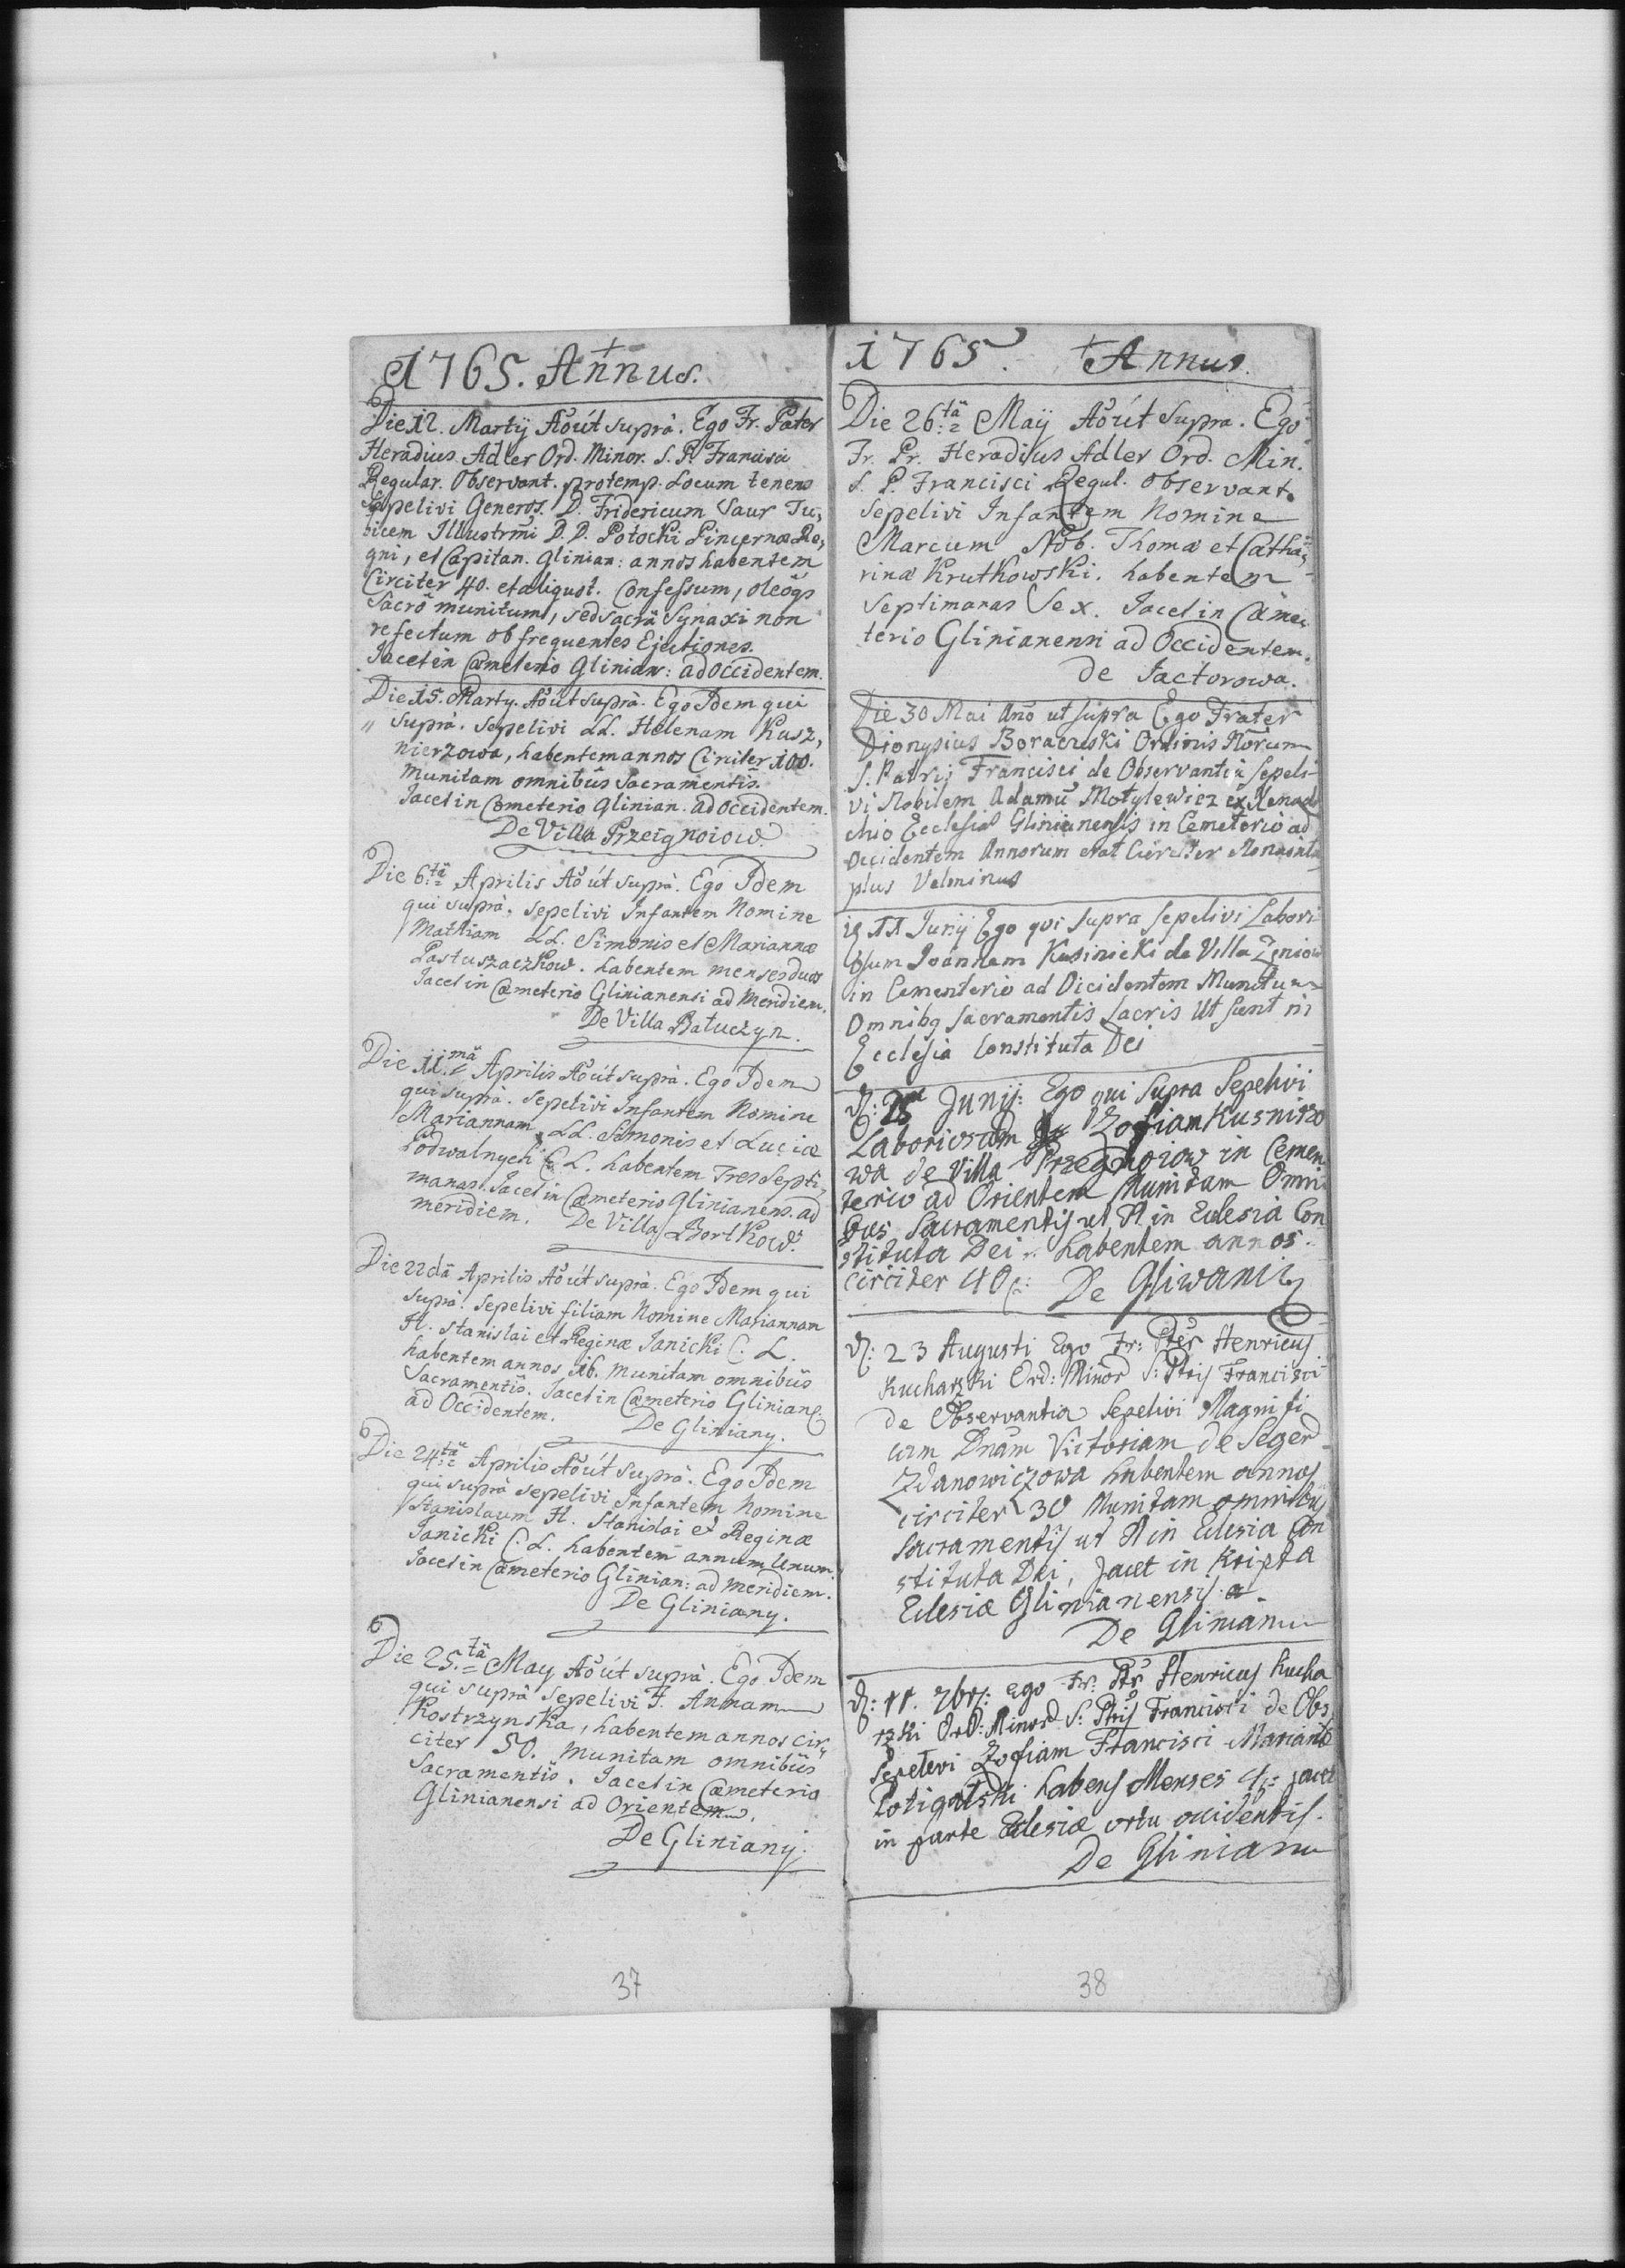 1765. Annus.
Die 12. Martÿ Ao út suprà. Ego Fr. Pater
Heradius Adler Ord. Minor. S. P. Francisci
Regular. Observant. protemp. Locum tenens
Sepelivi Generos. D. Fridericum Saur Tu,
bicem Illustrmi D. D. Potocki Pincernæ Re,
gni, et Capitan. Glinian: annos habentem
Circiter 40. et aliquot. Confessum, oleoqs
Sacro munitum, sed sacrâ Synaxi non
refectum ob frequentes Ejectiones.
Jacet in Cæmeterio Glinian: ad Occidentem.
Die 15. Marty. Ao út suprà. Ego Idem qui
" suprà. sepelivi LL. Helenam Kusz,
nierzowa, habentem annos Circiter 100.
munitam omnibus Sacramentis.
Jacet in Cæmeterio Glinian. ad Occidentem.
De Villa Przeignoiow.
Die 6.tâ Aprilis Ao út suprà. Ego Idem
qui suprà, sepelivi Infantem Nomine
Mathiam LL. Simonis et Mariannæ
Pastuszaczkow. habentem menses duos
Jacet in Cæmeterio Glinianensi ad Meridiem.
De Villa Bałuczyn.
Die 11.mâ Aprilis Ao út suprà. Ego Idem
qui suprà. sepelivi Infantem Nomine
Mariannam, LL. Simonis et Luciæ
Podwalnych C. L. habentem Tres Septi,
manas. Jacet in Cæmeterio Glinianens. ad
meridiem. De Villa Bortkow.
Die 22dâ Aprilis Ao út suprà. Ego Idem qui
suprà. sepelivi filiam Nomine Mariannam
H. Stanislai et Reginæ Janicki C. L.
habentem annos 16. munitam omnibus
Sacramentis. Jacet in Cæmeterio Glinian
ad Occidentem. De Gliniany.
Die 24.tâ Aprilis Ao út suprà. Ego Idem
qui suprà sepelivi Infantem Nomine
Stanislaum H. Stanislai et Reginæ
Janicki C. L. habentem annum Unum.
Jacet in Cæmeterio Glinian: ad meridiem.
De Gliniany.
Die 25.tâ May Ao út suprà. Ego Idem
qui suprà sepelivi F. Annam
Kostrzynska, habentem annos cir,
citer 50. munitam omnibus
Sacramentis. Jacet in Cæmeterio
Glinianensi ad Orientem.
De Gliniany.
37
1765. Annus.
Die 26.tâ Maÿ Ao út supra. Ego
Fr. Pr. Heradius Adler Ord. Min.
S. P. Francisci Regul. Observant.
Sepelivi Infantem Nomine
Marcum Nob. Thomæ et Catha,
rinæ Krutkowski. habentem
Septimanas Sex. Jacet in Cæme,
terio Glinianensi ad Occidentem.
de Jactorowa.
Die 30 Mai Ano ut supra Ego Frater
Dionysius Ordinis
S. Patris Francisci de Observantia sepeli
vi Nobilem Adamu Motylewicz ex
Ecclesiæ Glinianensis in Cemeterio ad
Occidentem Annorum erat Circiter
plus
11 Junij Ego qui supra sepelivi Labori
osum Joannem Kasinicki de Villa Zeniow
in Cementerio ad Occidentem Munitum
Omnibq sacramentis sacris Ut sunt in
Ecclesia Constituta Dei
D: Junij: Ego qui supra Sepelivi
Laboriosam Zofiam Kusnirzo
wa de Villa Przegnoiow in Cemen
terio ad Orientem Munitam Omni
bus Sacramentis ut st in Eclesia Con
stituta Dei. habentem annos
circiter 40 De Gliwani
D: 23 Augusti Ego Fr: Pter Henricus
Kucharzki Ord: Minor S: Ptris Francisci
de Observantia Sepelivi Magnifi
cam Dnam Victoriam de Seger
Zdanowiczowa habentem annos
circiter 30 Munitam omnibus
Sacramentis ut st in Eclesia Con
stituta Dei, Jacet in Kripta
Eclesiæ Glinianensis.
De Gliniani
D: 11. 7bris: ego Fr: Ptr Henricus Kucha
rzki Ord: Minor S: Ptris Francisci de Obs
Sepelivi Zofiam Francisci Mariannæ
habens Menses 4: jacet
in parte Eclesiæ ortu occidentis.
De Gliniani
38